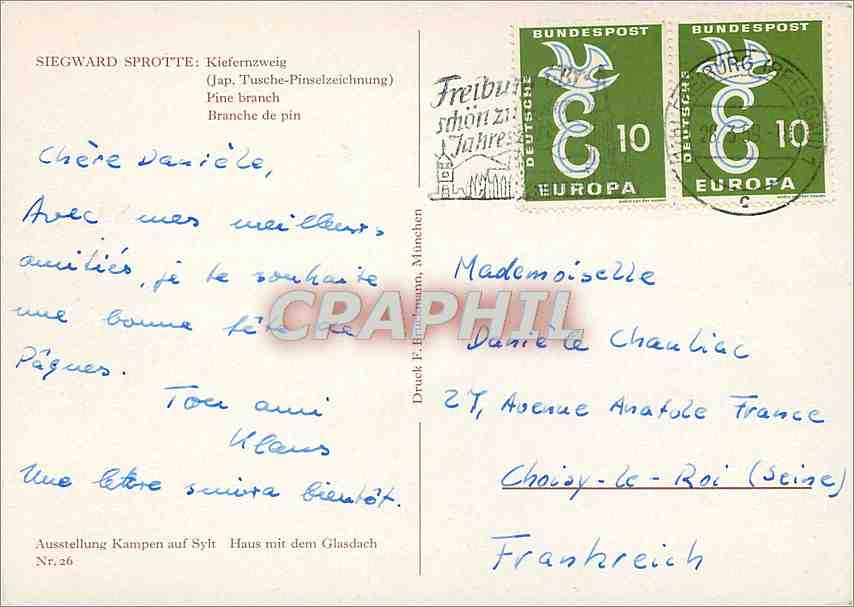 SIEGWARD SPROTTE: Kiefernzweig
(Jap. Tusche-Pinselzeichnung)
Pine branch
Branche de pin
Chère Danièle,
Avec mes meilleurs
amitiés, je te souhaite
une bonne fête de
Pâques.
Ton ami
Klaus
Une lettre suivra bientôt.
Ausstellung Kampen auf Sylt Haus mit dem Glasdach
Nr. 26
Druck F. Bruckmann, München
Freiburg
schön zu
Jahres
DEUTSCHE
BUNDESPOST
10
EUROPA
BUNDESPOST
10
EUROPA
c
CPARAPHIL
Mademoiselle
Danièle Chauliac
27, Avenue Anatole France
Choisy-le-Roi (Seine)
Frankreich